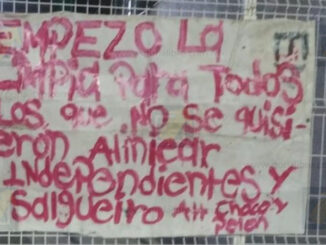 EMPEZO LA
EMPIA PARA TODOS
LOS QUE NO SE QUISI-
ERON Alinicar
INDEPENDIENTES Y
SALGUEIRO Att Choco y
Pelen